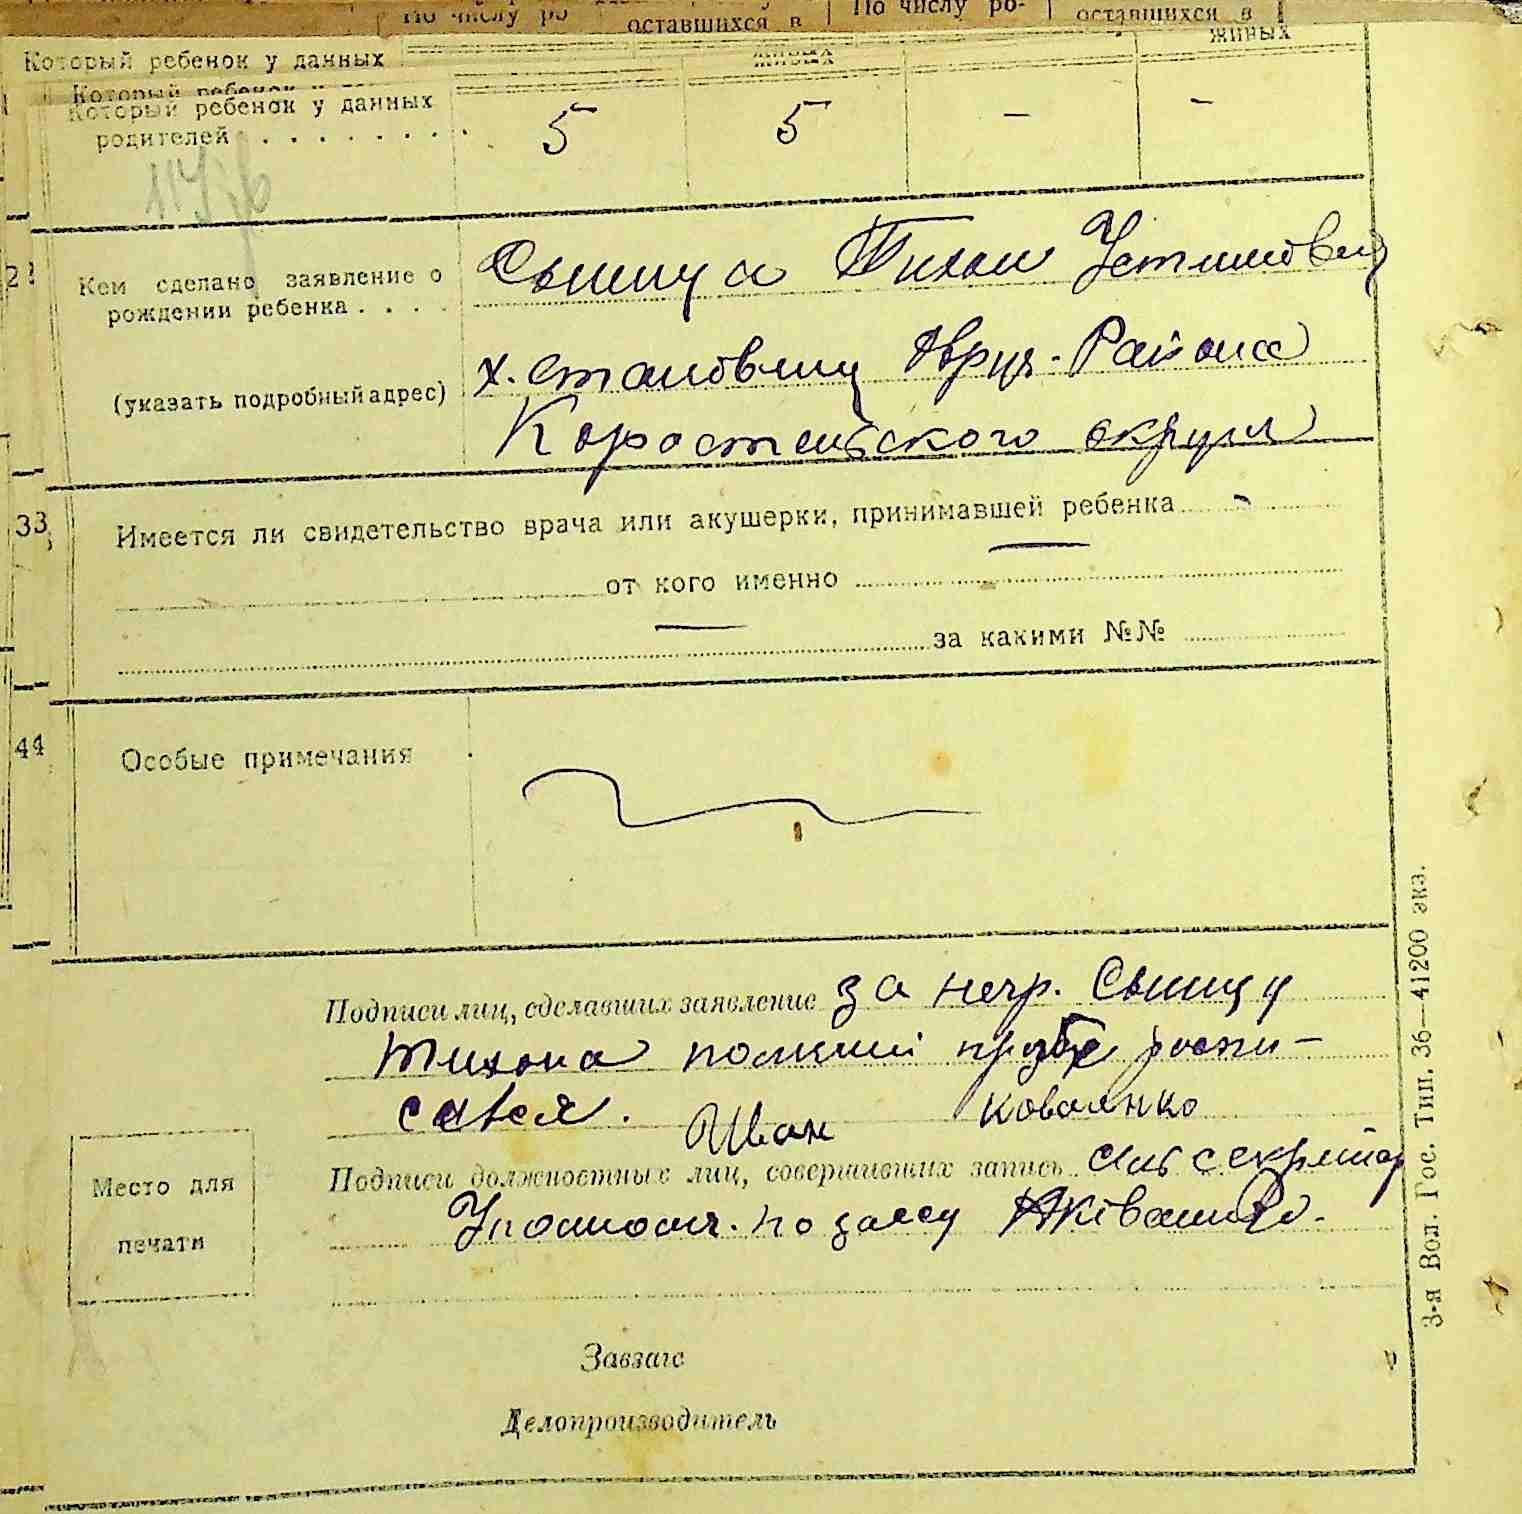 По числу ро- оставшихся в По числу ро- оставшихся в
живых живых
Который ребенок у данных
Который ребенок у данных
родителей . . . . . . . . 5 5 – –
Кем сделано заявление о Тихон Устимович
рождении ребенка . . . .
(указать подробный адрес) х. Овруч. Района
Коростенского округа
33 Имеется ли свидетельство врача или акушерки, принимавшей ребенка –
от кого именно —
— за какими №№
44 Особые примечания
Подписи лиц, сделавших заявление за негр. Сыницу
Тихона роспи-
сався. Иван Коваленко
Подписи должностных лиц, совершивших запись секретар
Уполномоч. по загсу
Место для
печати
Завзагс
Делопроизводитель
3-я Вол. Гос. Тип. 36—41200 экз.